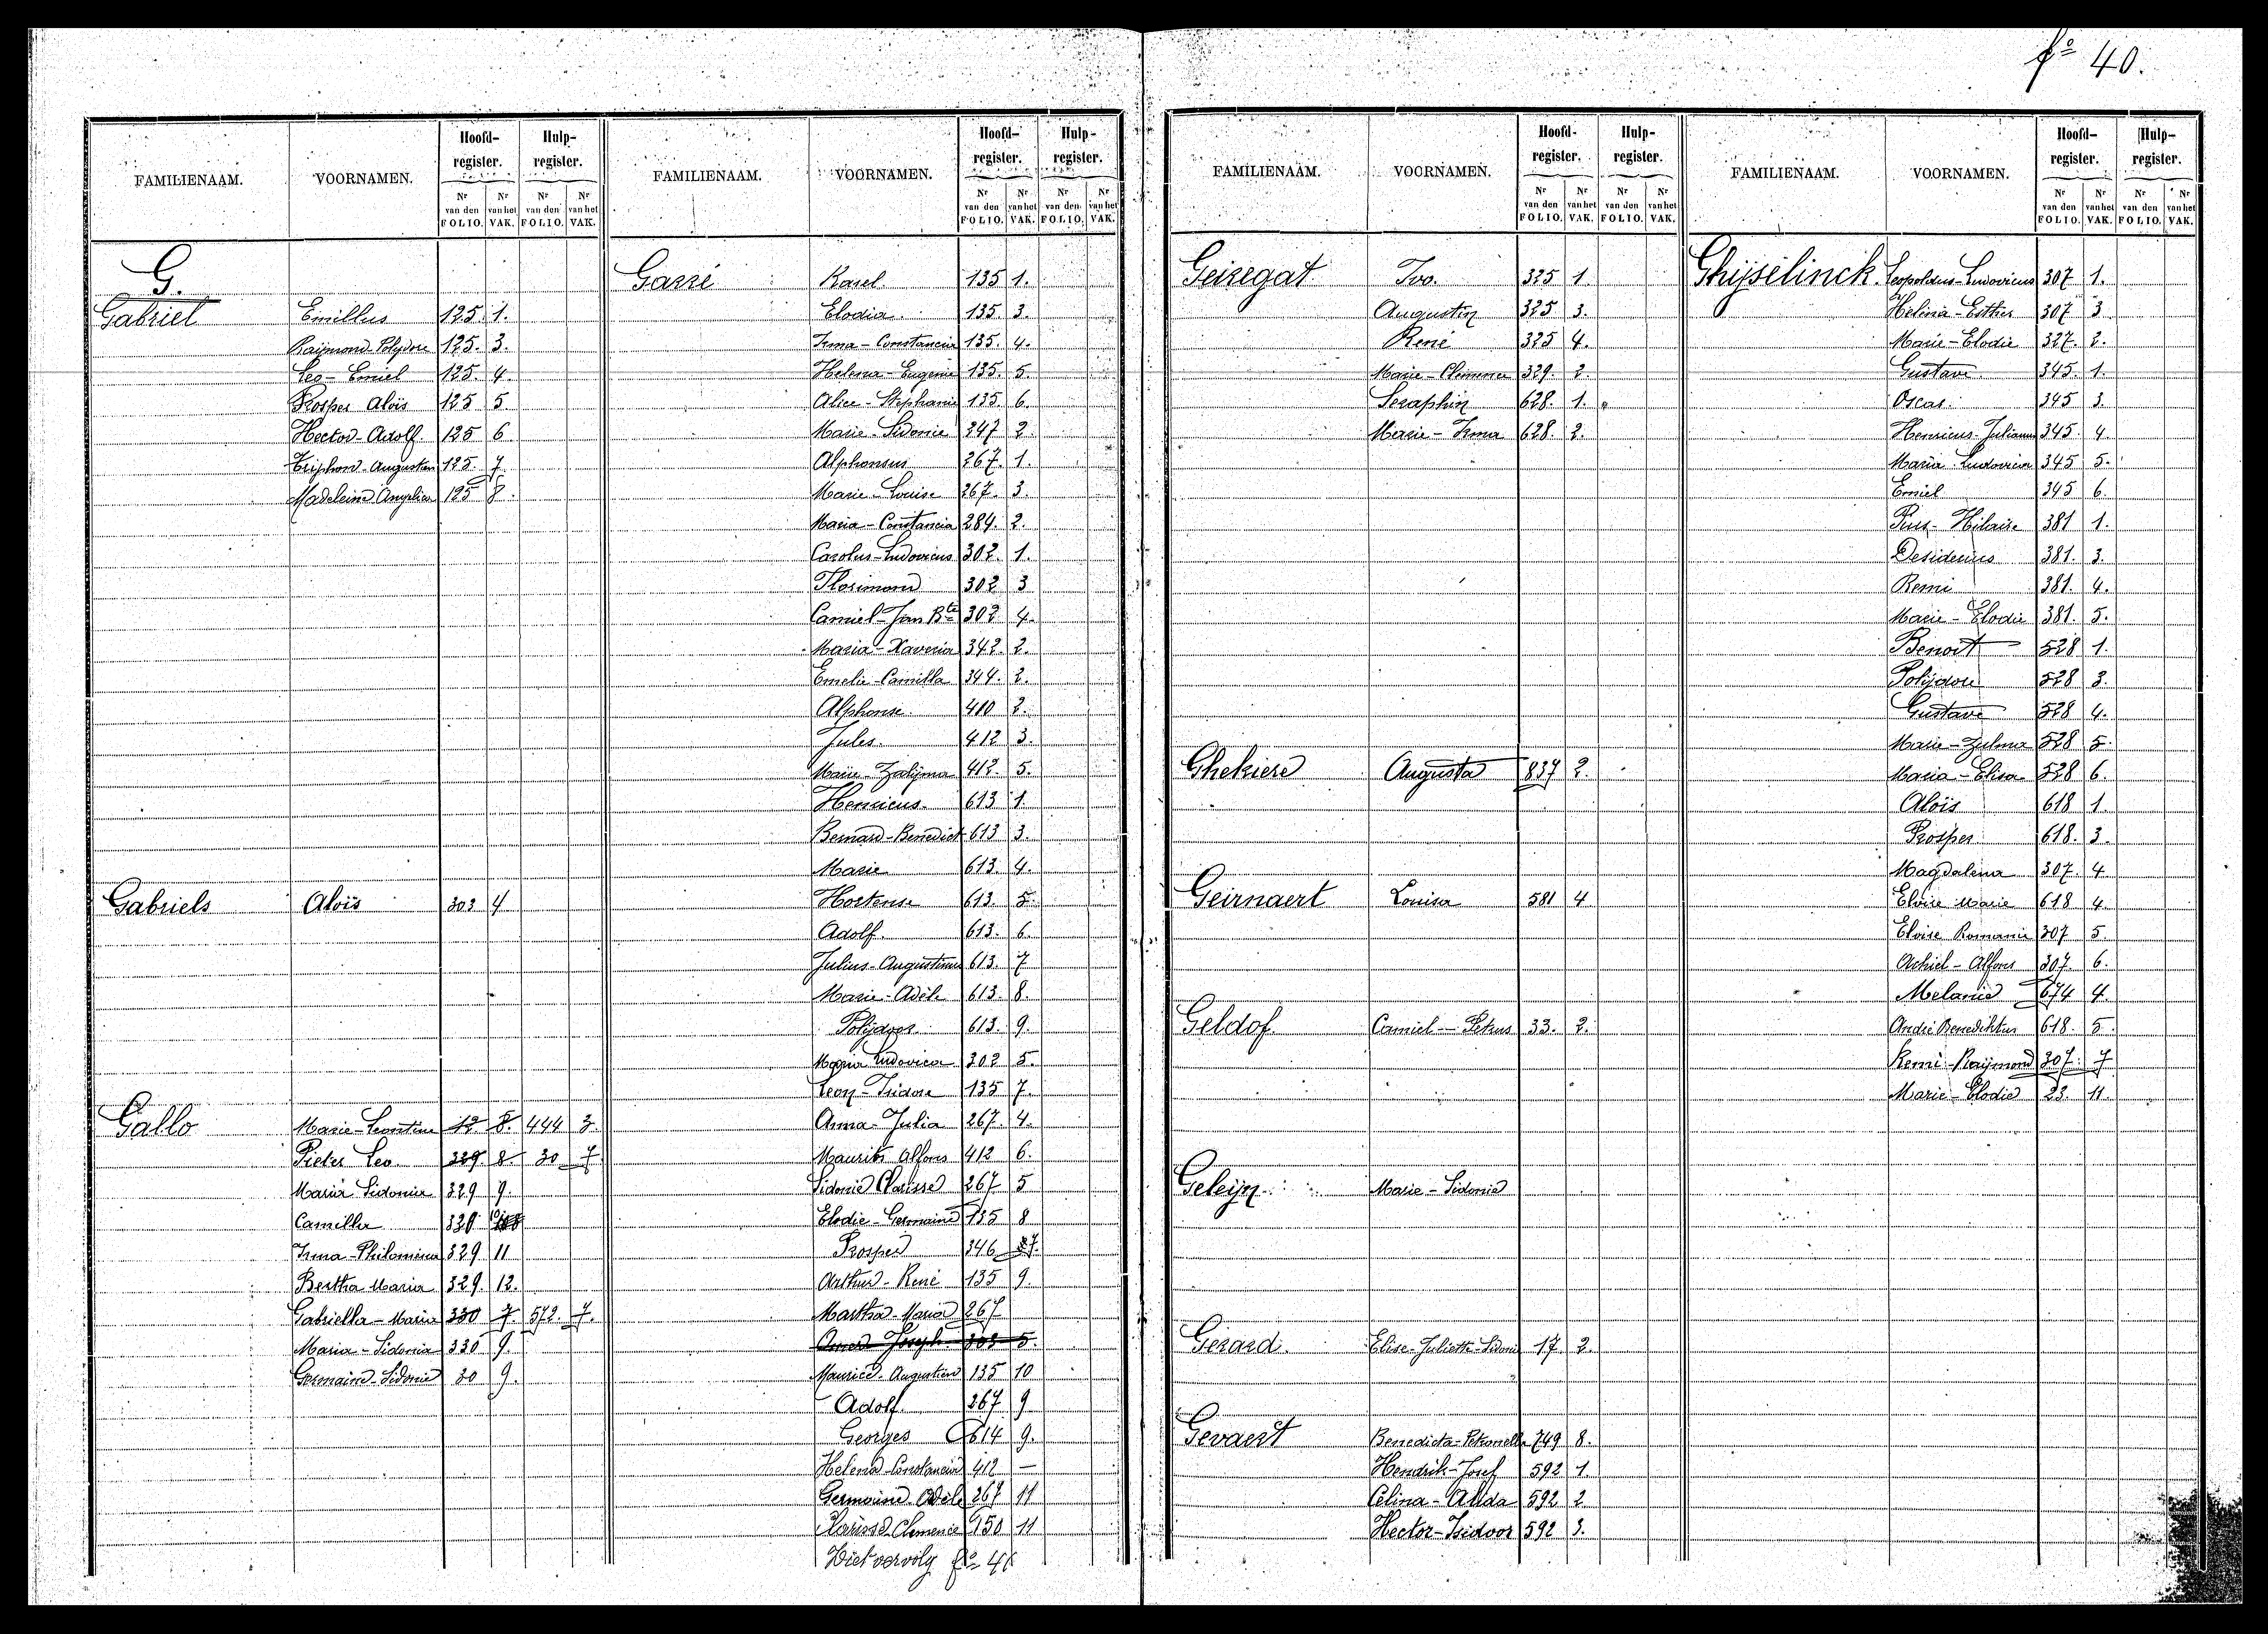 fº 40.
FAMILIENAAM. VOORNAMEN. Hoofd-register. Hulp-register.
Nr van den FOLIO. Nr van het VAK. Nr van den FOLIO. Nr van het VAK.
G.
Gabriel Emillus 125. 1.
Raÿmond-Polydore 125. 3.
Leo-Emiel 125. 4.
Prosper Aloïs 125 5.
Hector-Adolf. 125 6
Triphon-Augustin 125. 7.
Madeleine Angelica 125 8.
Gabriels Aloïs 303 4
Gallo Marie-Leontine 12. 8. 444 3.
Pieter Leo. 329. 8. 30 7.
Maria Sidonia 329 9.
Camilla 329 10
Irma-Philomina 329 11
Bertha Maria 329. 12.
Gabriella-Maria 330 7. 572. 7.
Maria-Sidonia 330 9.
Germaine-Sidonie 30 9.
FAMILIENAAM. VOORNAMEN. Hoofd-register. Hulp-register.
Nr van den FOLIO. Nr van het VAK. Nr van den FOLIO. Nr van het VAK.
Garré Karel. 135 1.
Elodia 135. 3.
Irma-Constancia 135. 4.
Helena-Eugenie 135. 5.
Alice-Stephanie 135. 6.
Marie-Sidonie 247 2.
Alphonsus 267. 1.
Marie-Louise 267. 3.
Maria-Constancia 284. 2.
Carolus-Ludovicus 302. 1.
Florimond 302 3
Camiel-Jan Bte 302 4.
Maria-Xaveria 342. 2.
Emelie-Camilla 344. 2.
Alphonse. 410 2.
Jules. 412 3.
Marie-Zulijma 412. 5.
Henricus. 613 1.
Bernard-Benedict 613 3.
Marie 613. 4.
Hortense 613. 5.
Adolf. 613. 6.
Julius-Augustinus 613. 7
Marie-Adèle 613. 8.
Polijdoor 613. 9.
Maria Ludovica 302 5.
Leon-Isidore 135 7.
Anna-Julia 267. 4.
Maurits Alfons 412 6.
Sidonie Clarisse 267 5
Elodie-Germaine 135 8
Prosper 346 7.
Arthur-René 135 9.
Martha-Maria 267
Joseph 303 5.
Maurice-Augustien 135 10
Adolf. 267 9
Georges 614 9.
Helena-Constancia 412 —
Germaine Adèle 267 11
Clarisse-Clemence 150 11
Ziet vervolg fº 41
FAMILIENAAM. VOORNAMEN. Hoofd-register. Hulp-register.
Nr van den FOLIO. Nr van het VAK. Nr van den FOLIO. Nr van het VAK.
Geiregat Ivo. 325 1.
Augustin 325 3.
René 325 4.
Marie-Clemence 329. 2.
Seraphin 628. 1.
Marie-Irma 628. 2.
Ghekiere Augusta 837 2.
Geirnaert Louisa 581 4
Geldof. Camiel-Petrus 33. 2.
Geleijn Marie-Sidonie
Gerard. Elise-Juliette-Sidonie 17 2.
Gevaert Benedicta-Petronella 749 8.
Hendrik-Josef 592 1.
Celina-Alida 592 2
Hector-Isidoor 592 3.
FAMILIENAAM. VOORNAMEN. Hoofd-register. Hulp-register.
Nr van den FOLIO. Nr van het VAK. Nr van den FOLIO. Nr van het VAK.
Ghijselinck. Leopoldus-Ludovicus 307 1.
Helena-Esther 307 3
Marie-Elodie 327. 2.
Gustave. 345. 1.
Oscar. 345 3.
Henricus-Julianus 345. 4.
Maria Ludovica 345 5.
Emiel 345 6.
Pius-Hilaire 381 1.
Desiderius 381. 3.
Remi 381. 4.
Marie-Elodie 381. 5.
Benoit 528 1.
Polijdore 528 3.
Gustave 528 4.
Marie-Zulma 528 5.
Maria-Elisa 528 6.
Aloïs 618 1.
Prosper 618. 3.
Magdalena 307. 4
Eloïse Marie 618 4.
Eloise Romanie 307 5.
Achiel-Alfons 307. 6.
Melanie 674 4.
André Benediktus 618. 5.
Remi-Raÿmond 307. 7
Marie-Elodie 23. 11.